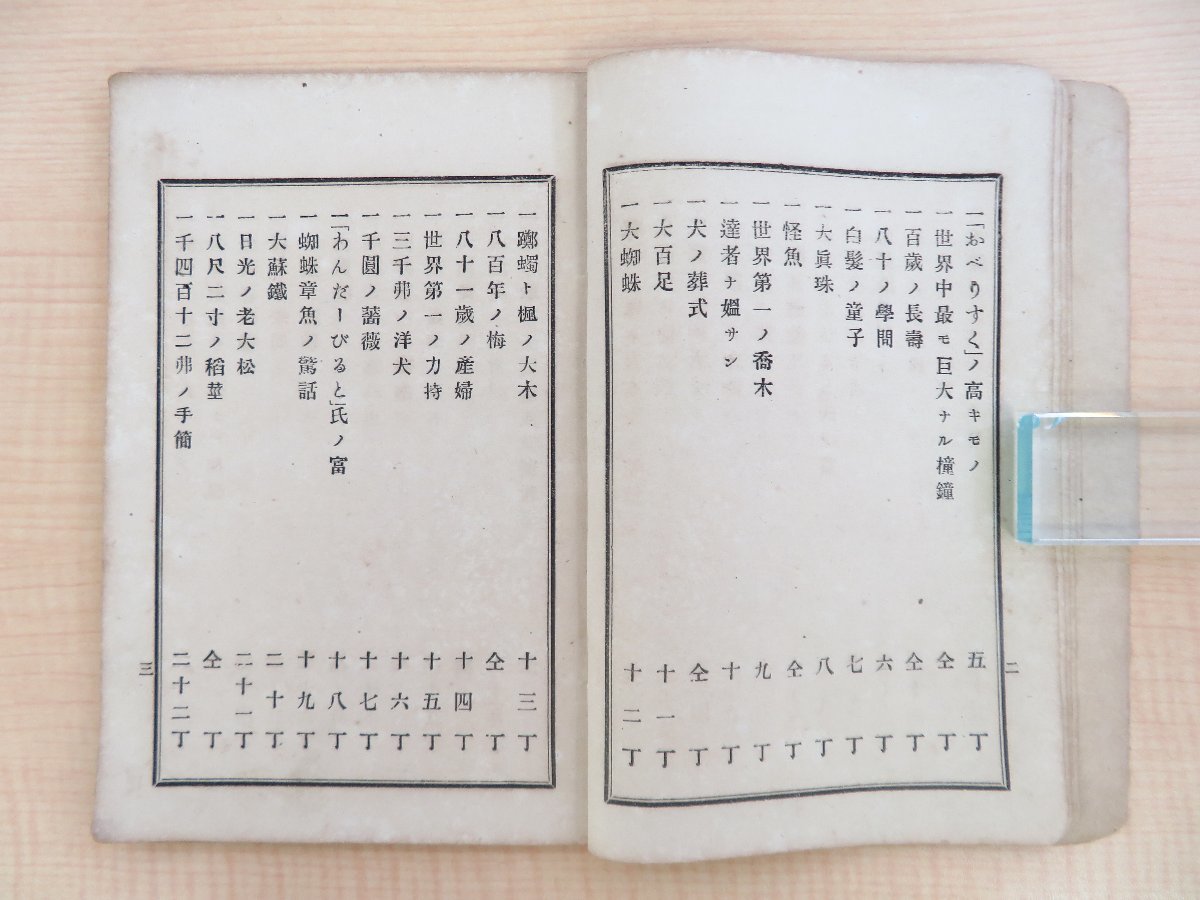 一「おべりすく」ノ高キモノ 五丁
一世界中最モ巨大ナル撞鐘 仝丁
一百歲ノ長壽 仝丁
一八十ノ學問 六丁
一白髮ノ童子 七丁
一大眞珠 八丁
一怪魚 仝丁
一世界第一ノ喬木 九丁
一達者ナ媼サン 十丁
一犬ノ葬式 仝丁
一大百足 十一丁
一大蜘蛛 十二丁
二
一躑躅ト楓ノ大木 十三丁
一八百年ノ梅 仝丁
一八十一歲ノ產婦 十四丁
一世界第一ノ力持 十五丁
一三千弗ノ洋犬 十六丁
一千圓ノ薔薇 十七丁
一「わんだーびると」氏ノ富 十八丁
一蜘蛛章魚ノ驚話 十九丁
一大蘇鐵 二十丁
一日光ノ老大松 二十一丁
一八尺二寸ノ稻莖 仝丁
一千四百十二弗ノ手簡 二十二丁
三